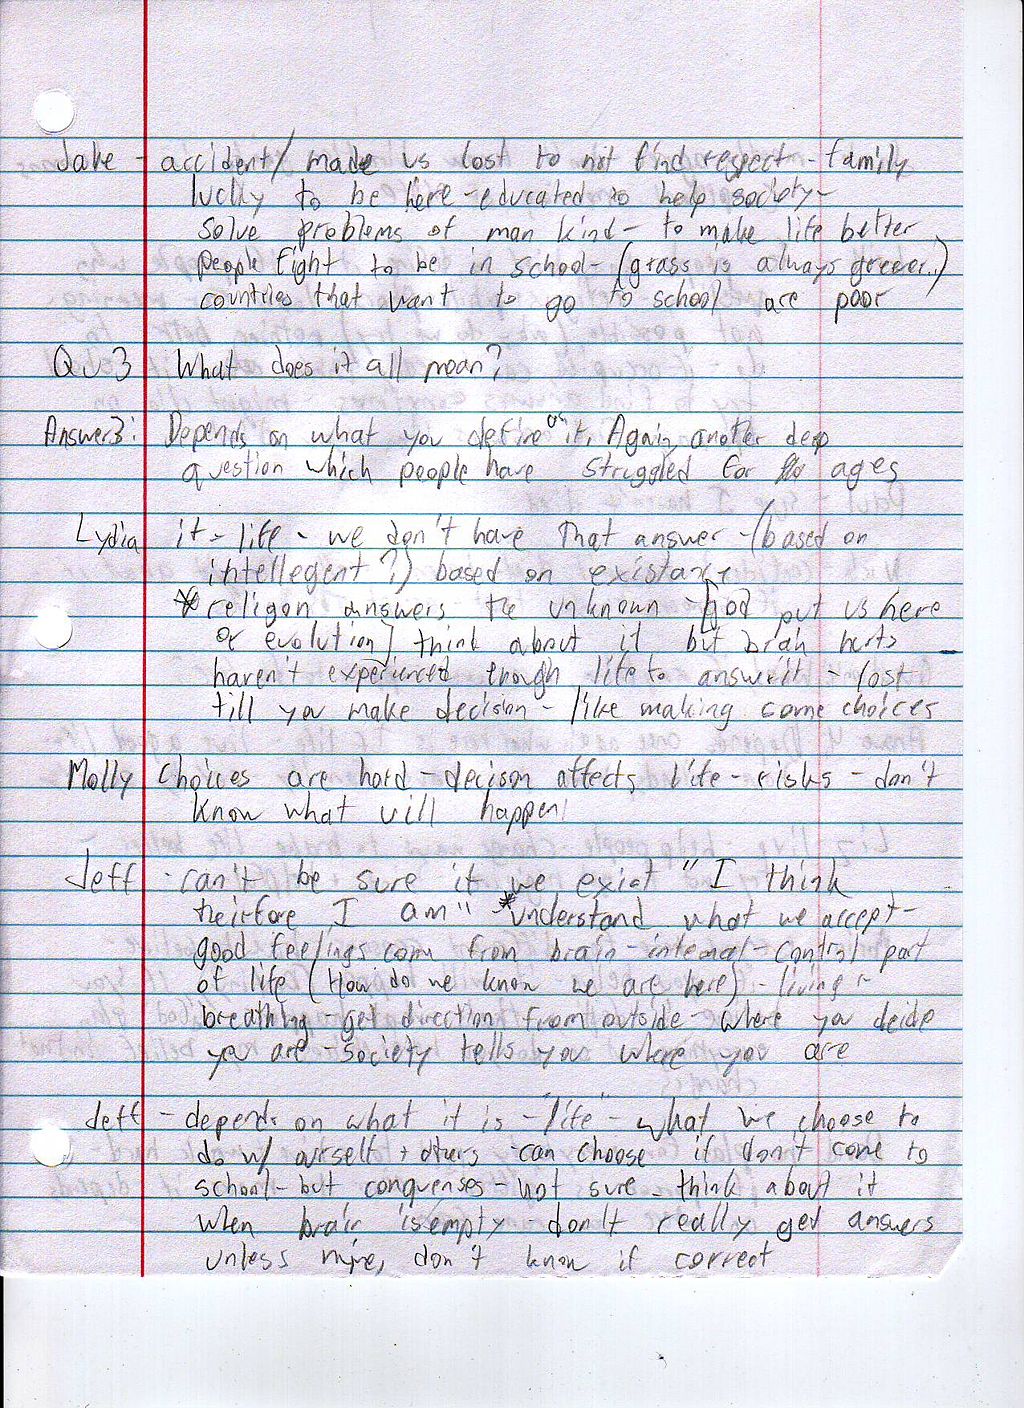 Jake - accident/ made us lost to not find respect - family
lucky to be here - educated to help society -
solve problems of man kind - to make life better
people fight to be in school - (grass is always greener..)
countries that want to go to school are poor
QU 3 What does it all mean?
Answer 3: Depends on what you define as it. Again another deep
question which people have struggled for ages
Lydia it - life - we don't have that answer - (based on
intellegent?) based on existance
* religon answers the unknown - [God put us here
or evolution] think about it but brain hurts
haven't experienced though life to answer it - lost
till you make decision - like making some choices
Molly Choices are hard - decison affects life - risks - don't
know what will happen
Jeff - can't be sure if we exist "I think
therfore I am" - *understand what we accept -
good feelings come from brain - internal - control part
of life (How do we know we are here) - living -
breathing - get direction from outside - where you deide
you are - society tells you where you are
Jeff - depends on what it is - "life" - what we choose to
do w/ ourself + others - can choose if don't come to
school - but conquenses - not sure - think about it
when brain is empty don't really get answers
unless mine, don't know if correct